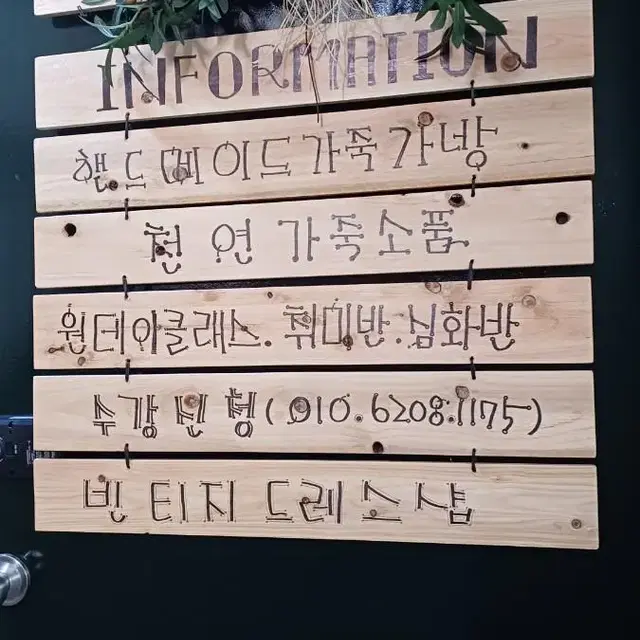 INFORMATION
핸드메이드가죽가방
천연가죽소품
원데이클래스. 취미반.심화반
수강신청(010.6208.1175)
빈티지드레스샵